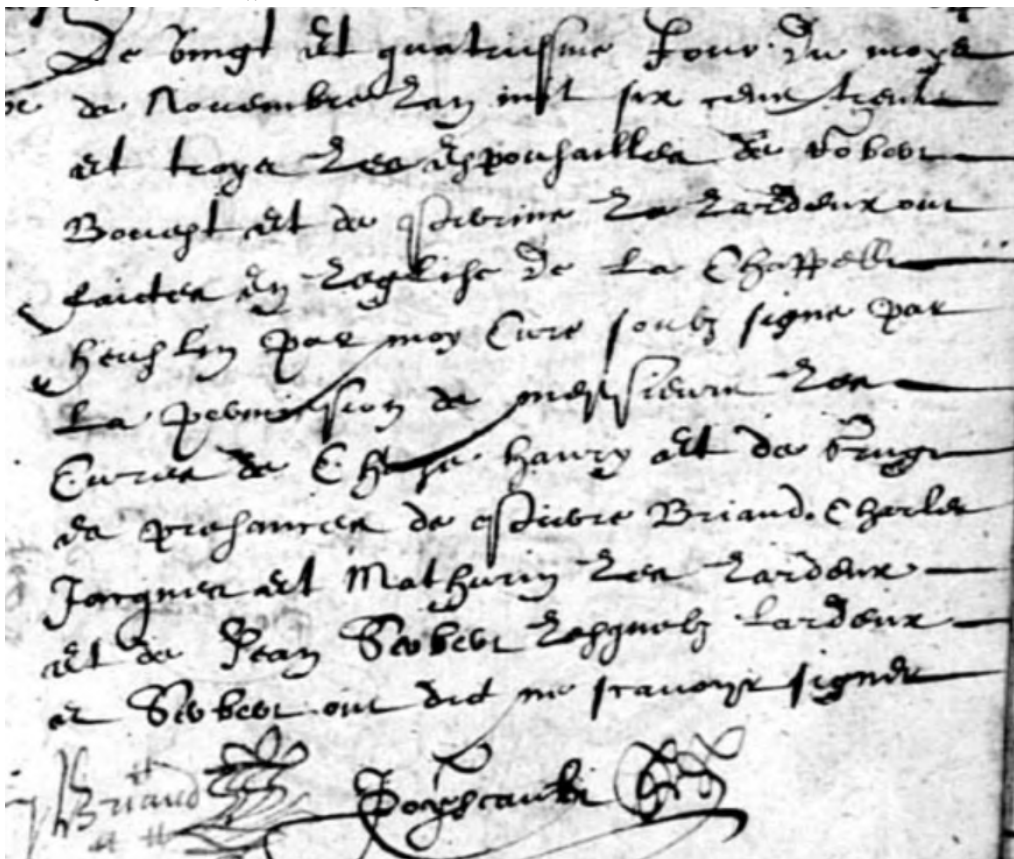 Le vingt et quatriesme Jour du moys
de Novembre Lan mil six cent trente
et troys Les espousailles de Robert
Bouest et de Perrine Le Lardeux ont
faictes en Leglise de La Chappelle
heuslin par moy Cure soubz signe par
La permission de messieurs Les
Cures de Chase henry et de Bruge
es presances de Pierre Briand Charles
Jacques et Mathurin Les Lardeux
et de Jean Serbert Lesquelz Lardeux
et Serbert ont dict ne scavoyr signer
Briand